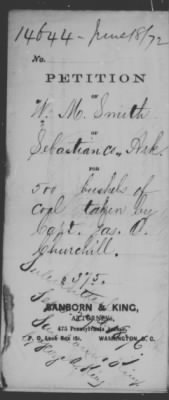 14644 - June 18/72
No.
PETITION
OF
W. M. Smith
OF
Sebastian co., Ark.
FOR
500 bushels of
coal taken by
Capt. Jas. O.
Churchill.
$375.
SANBORN & KING,
ATTORNEYS,
475 Pennsylvania Avenue,
P. O. Lock Box
WASHINGTON, D. C.